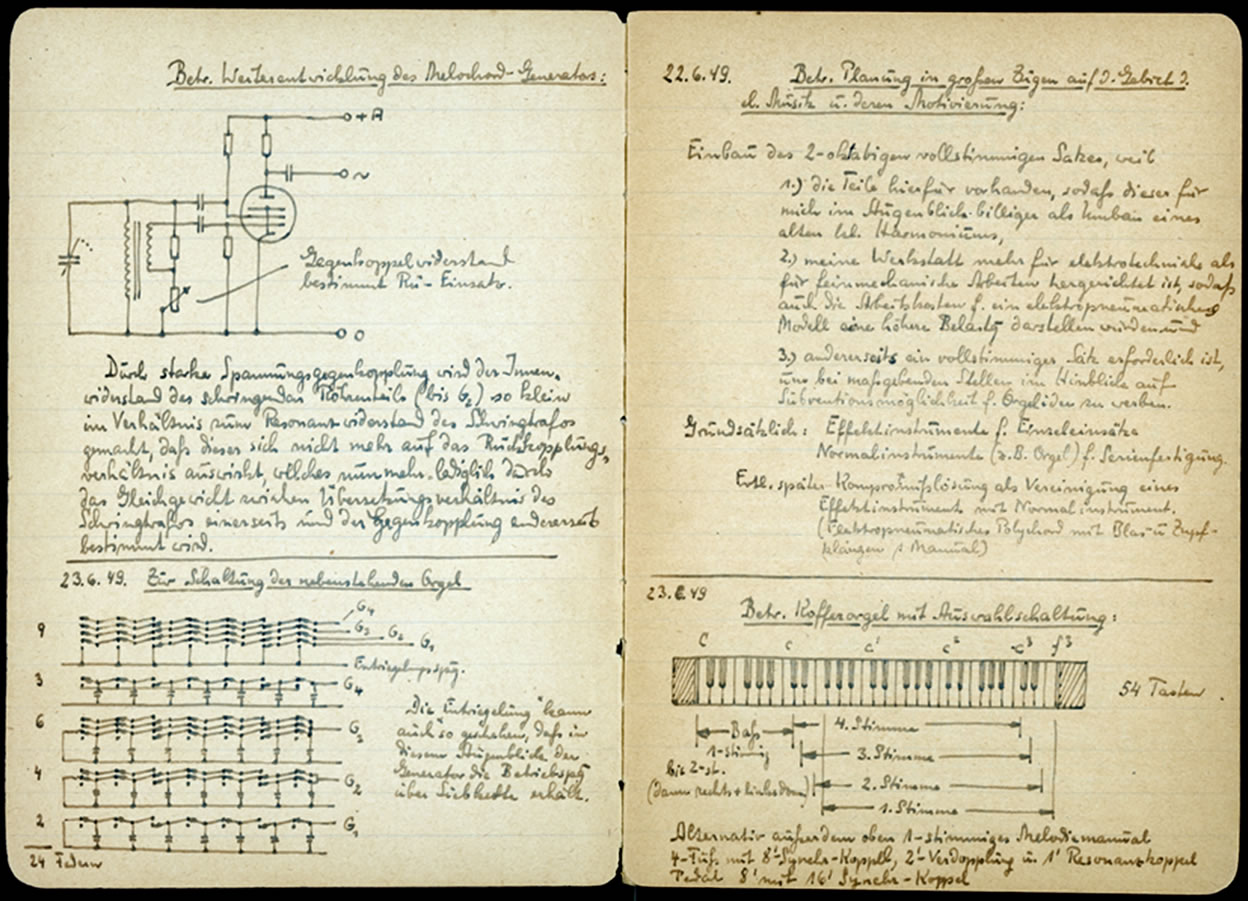 Betr. Weiterentwicklung des Melochord-Generators:
+A
~
Gegenkoppelwiderstand
bestimmt Rü-Einsatz.
0
Durch starke Spannungsgegenkopplung wird der Innen-
widerstand des schwingenden Röhrenteils (bis G₂) so klein
im Verhältnis zum Resonanzwiderstand des Schwingtrafos
gemacht, daß dieser sich nicht mehr auf das Rückkopplungs-
verhältnis auswirkt, welches nunmehr lediglich durch
das Gleichgewicht zwischen Übersetzungsverhältnis des
Schwingtrafos einerseits und der Gegenkopplung andererseits
bestimmt wird.
23.6.49. Zur Schaltung der nebenstehenden Orgel
9 G₄
G₃ G₂ G₁
Entriegelungsspg.
3 G₄
6 G₃
4 G₂
2 G₁
24 Federn
Die "Entriegelung" kann
auch so geschehen, daß in
diesem Augenblick der
Generator die Betriebsspg
über Siebkette erhält.
22.6.49. Betr. Planung in großen Zügen auf d. Gebiet d.
el. Musik u. deren Motivierung:
Einbau des 2-oktavigen vollstimmigen Satzes, weil
1.) die Teile hierfür vorhanden, sodaß dieser für
mich im Augenblick billiger als Umbau eines
alten Harmoniums,
2.) meine Werkstatt mehr für elektrotechnische als
für feinmechanische Arbeiten hergerichtet ist, sodaß
auch die Arbeitskosten f. ein elektropneumatisches
Modell eine höhere Belastg darstellen würden und
3.) andererseits ein vollstimmiger Satz erforderlich ist,
um bei maßgebenden Stellen im Hinblick auf
Subventionsmöglichkeit f. Orgelidee zu werben.
Grundsätzlich: Effektinstrumente f. Einzeleinsätze
Normalinstrumente (z.B. Orgel) f. Serienfertigung.
Evtl. später Kompromißlösung als Vereinigung eines
Effektinstruments mit Normalinstrument.
(Elektropneumatisches Polychord mit Blas- u Zupf-
klängen 1 Manual)
23.6.49
Betr. Kofferorgel mit Auswahlschaltung:
C c c¹ c² c³ f³
54 Tasten
Baß
1-stimmig
bis 2-st.
(dann rechts + links dom)
4. Stimme
3. Stimme
2. Stimme
1. Stimme
Alternativ außerdem oben 1-stimmiges Melodiemanual
4-Fuß mit 8'-Synchr-Koppel, 2'-Verdopplung u. 1' Resonanzkoppel
Pedal 8' mit 16' Synchr-Koppel